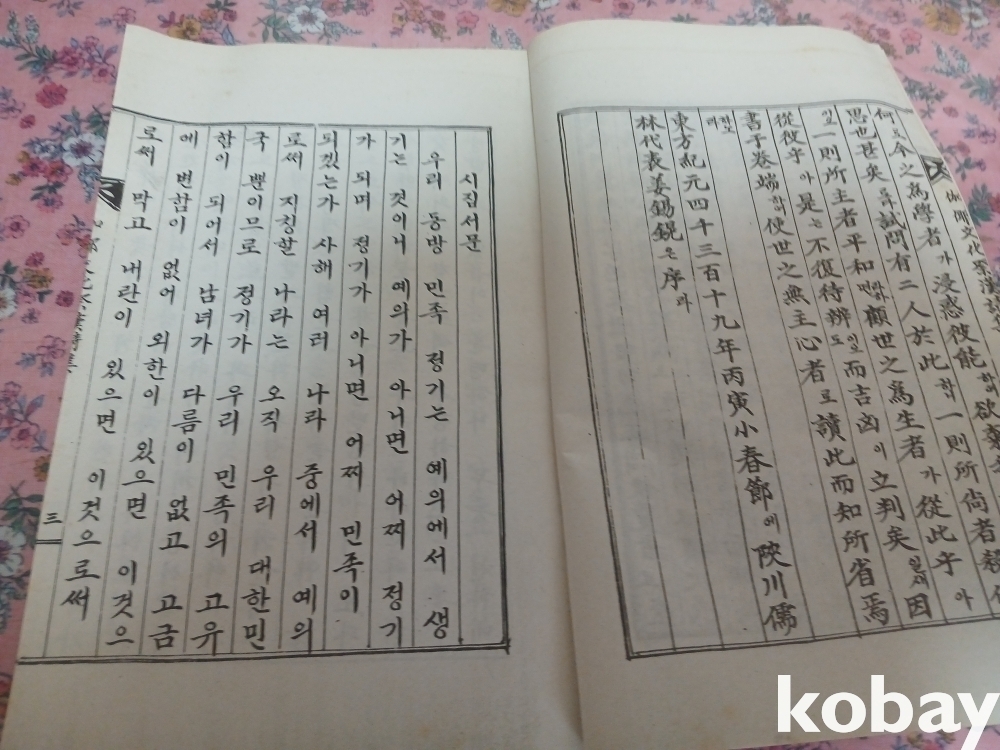 何오今之爲學者가浸惑彼能하야欲
思也甚矣라試問有二人於此하니一則所尙者
一則所主者平和면顧世之爲生者가從此乎아
從彼乎아是는不復待辨도而吉凶이立判矣일새因
書于卷端하야使世之無主心者로讀此而知所省焉
하노라
東方紀元四千三百十九年丙寅小春節에陜川儒
林代表姜錫銳은序
시집서문
우리 동방 민족 정기는 예의에서 생
기는 것이니 예의가 아니면 어찌 정기
가 되며 정기가 아니면 어찌 민족이
되겠는가 사해 여러 나라 중에서 예의
로써 지칭할 나라는 오직 우리 대한민
국 뿐이므로 정기가 우리 민족의 고유
함이 되어서 남녀가 다름이 없고 고금
에 변함이 없어 외한이 있으면 이것으
로써 막고 내란이 있으면 이것으로써
三
kobay